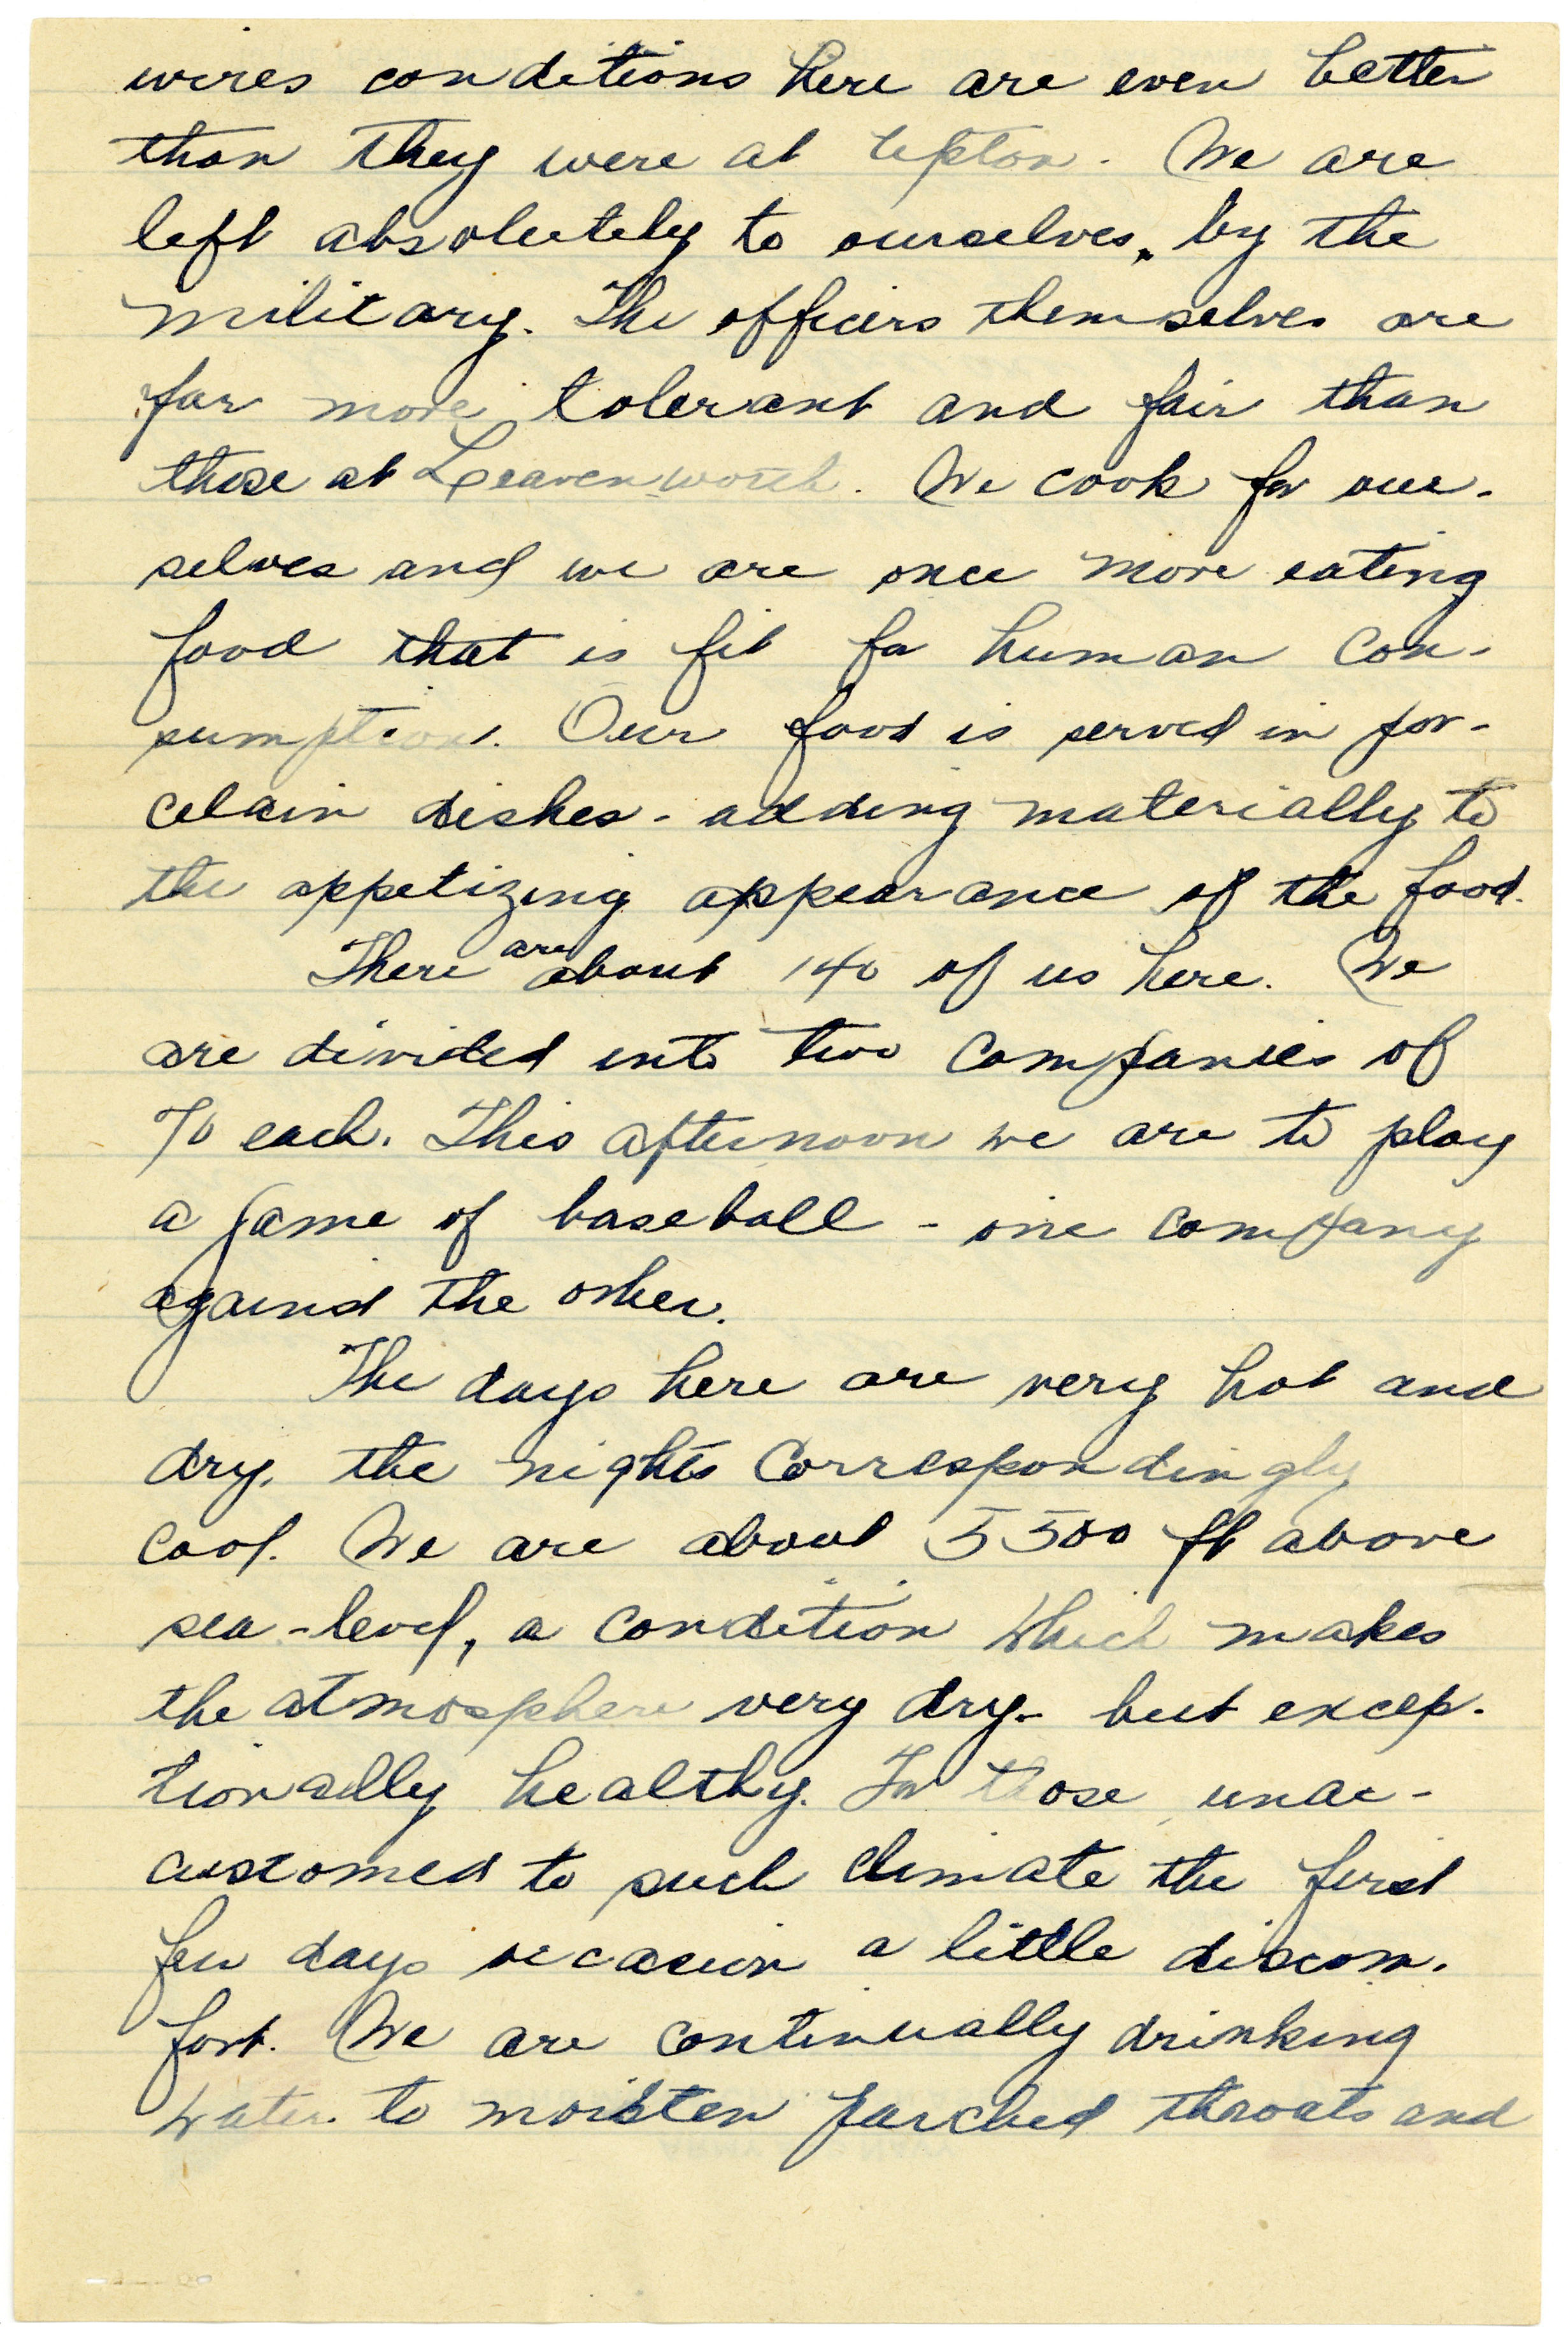 wires conditions here are even better
than they were at Upton. We are
left absolutely to ourselves, by the
military. The officers themselves are
far more tolerant and fair than
those at Leavenworth. We cook for our-
selves and we are once more eating
food that is fit for human con-
sumption. Our food is served in por-
celain dishes - adding materially to
the appetizing appearance of the food.
There are about 140 of us here. We
are divided into two companies of
70 each. This afternoon we are to play
a game of baseball - one company
against the other.
The days here are very hot and
dry, the nights correspondingly
cool. We are about 5500 ft above
sea-level, a condition which makes
the atmosphere very dry - but excep-
tionally healthy. For those unac-
customed to such climate the first
few days occasion a little discom-
fort. We are continually drinking
water to moisten parched throats and